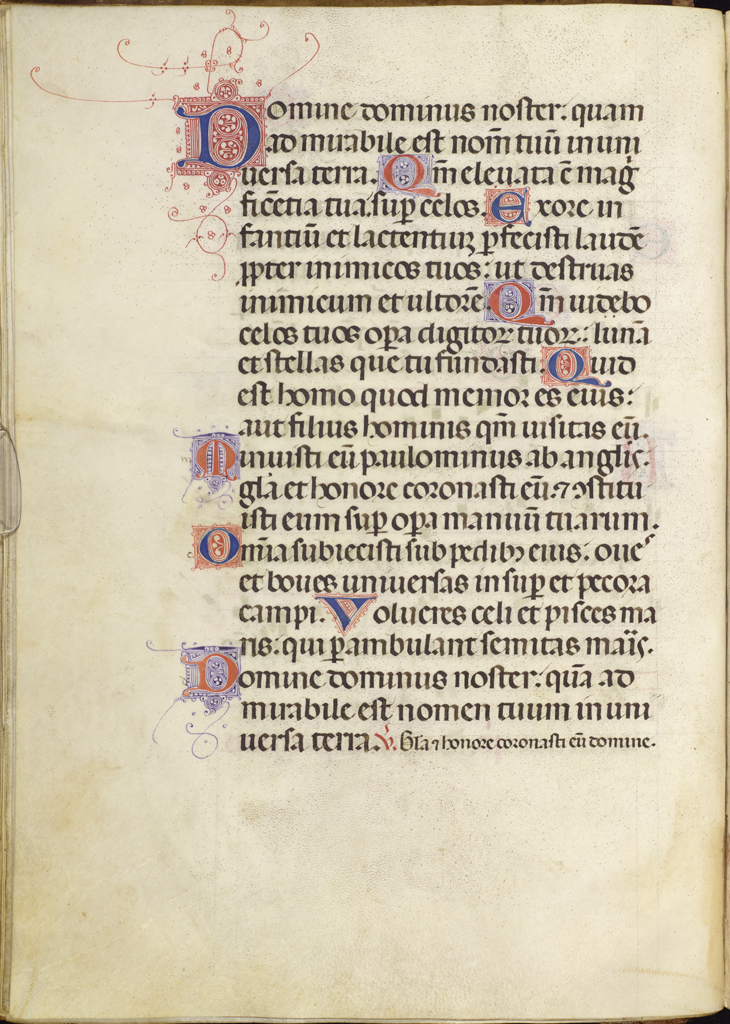 Domine dominus noster: quam
ad mirabile est nom̄ tuū in uni
uersa terra. Qm̄ eleuata ē mag
ficētia tua. sup̄ celos. Ex ore in
fantiū et lactentiuꝫ ꝑfecisti laudē
ꝓpter inimicos tuos: ut destruas
inimicum et ultorē. Qm̄ uidebo
celos tuos oꝑa digitoꝝ tuoꝝ: lunā
et stellas que tu fundasti. Quid
est homo quod memor es eius:
aut filius hominis qm̄ uisitas eū.
Minuisti eū paulominus ab angl̄is:
gl̄a et honore coronasti eū: ⁊ ꝯstitu
isti eum sup̄ oꝑa manuū tuarum.
Om̄ia subiecisti sub pedibꝫ eius: oues
et boues uniuersas insup̄ et pecora
campi. Volucres celi et pisces ma
ris: qui ꝑambulant semitas maris.
Domine dominus noster: quā ad
mirabile est nomen tuum in uni
uersa terra. ℣. Gl̄a ⁊ honore coronasti eū domine.